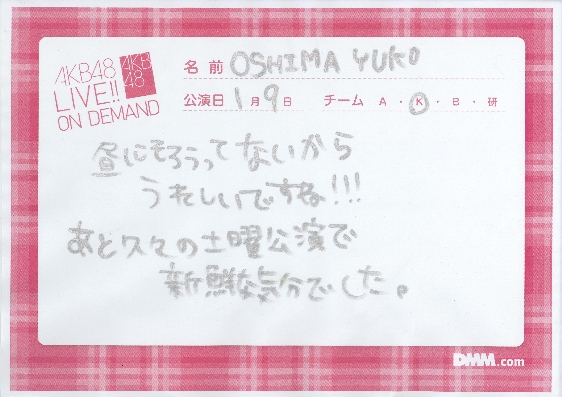 AKB48
LIVE!!
ON DEMAND
AKB
48
名前 OSHIMA YUKO
公演日 1月9日 チーム A・K・B・研
昼にそろうってないから
うれしいですね!!!
あと久々の土曜公演で
新鮮な気分でした。
DMM.com